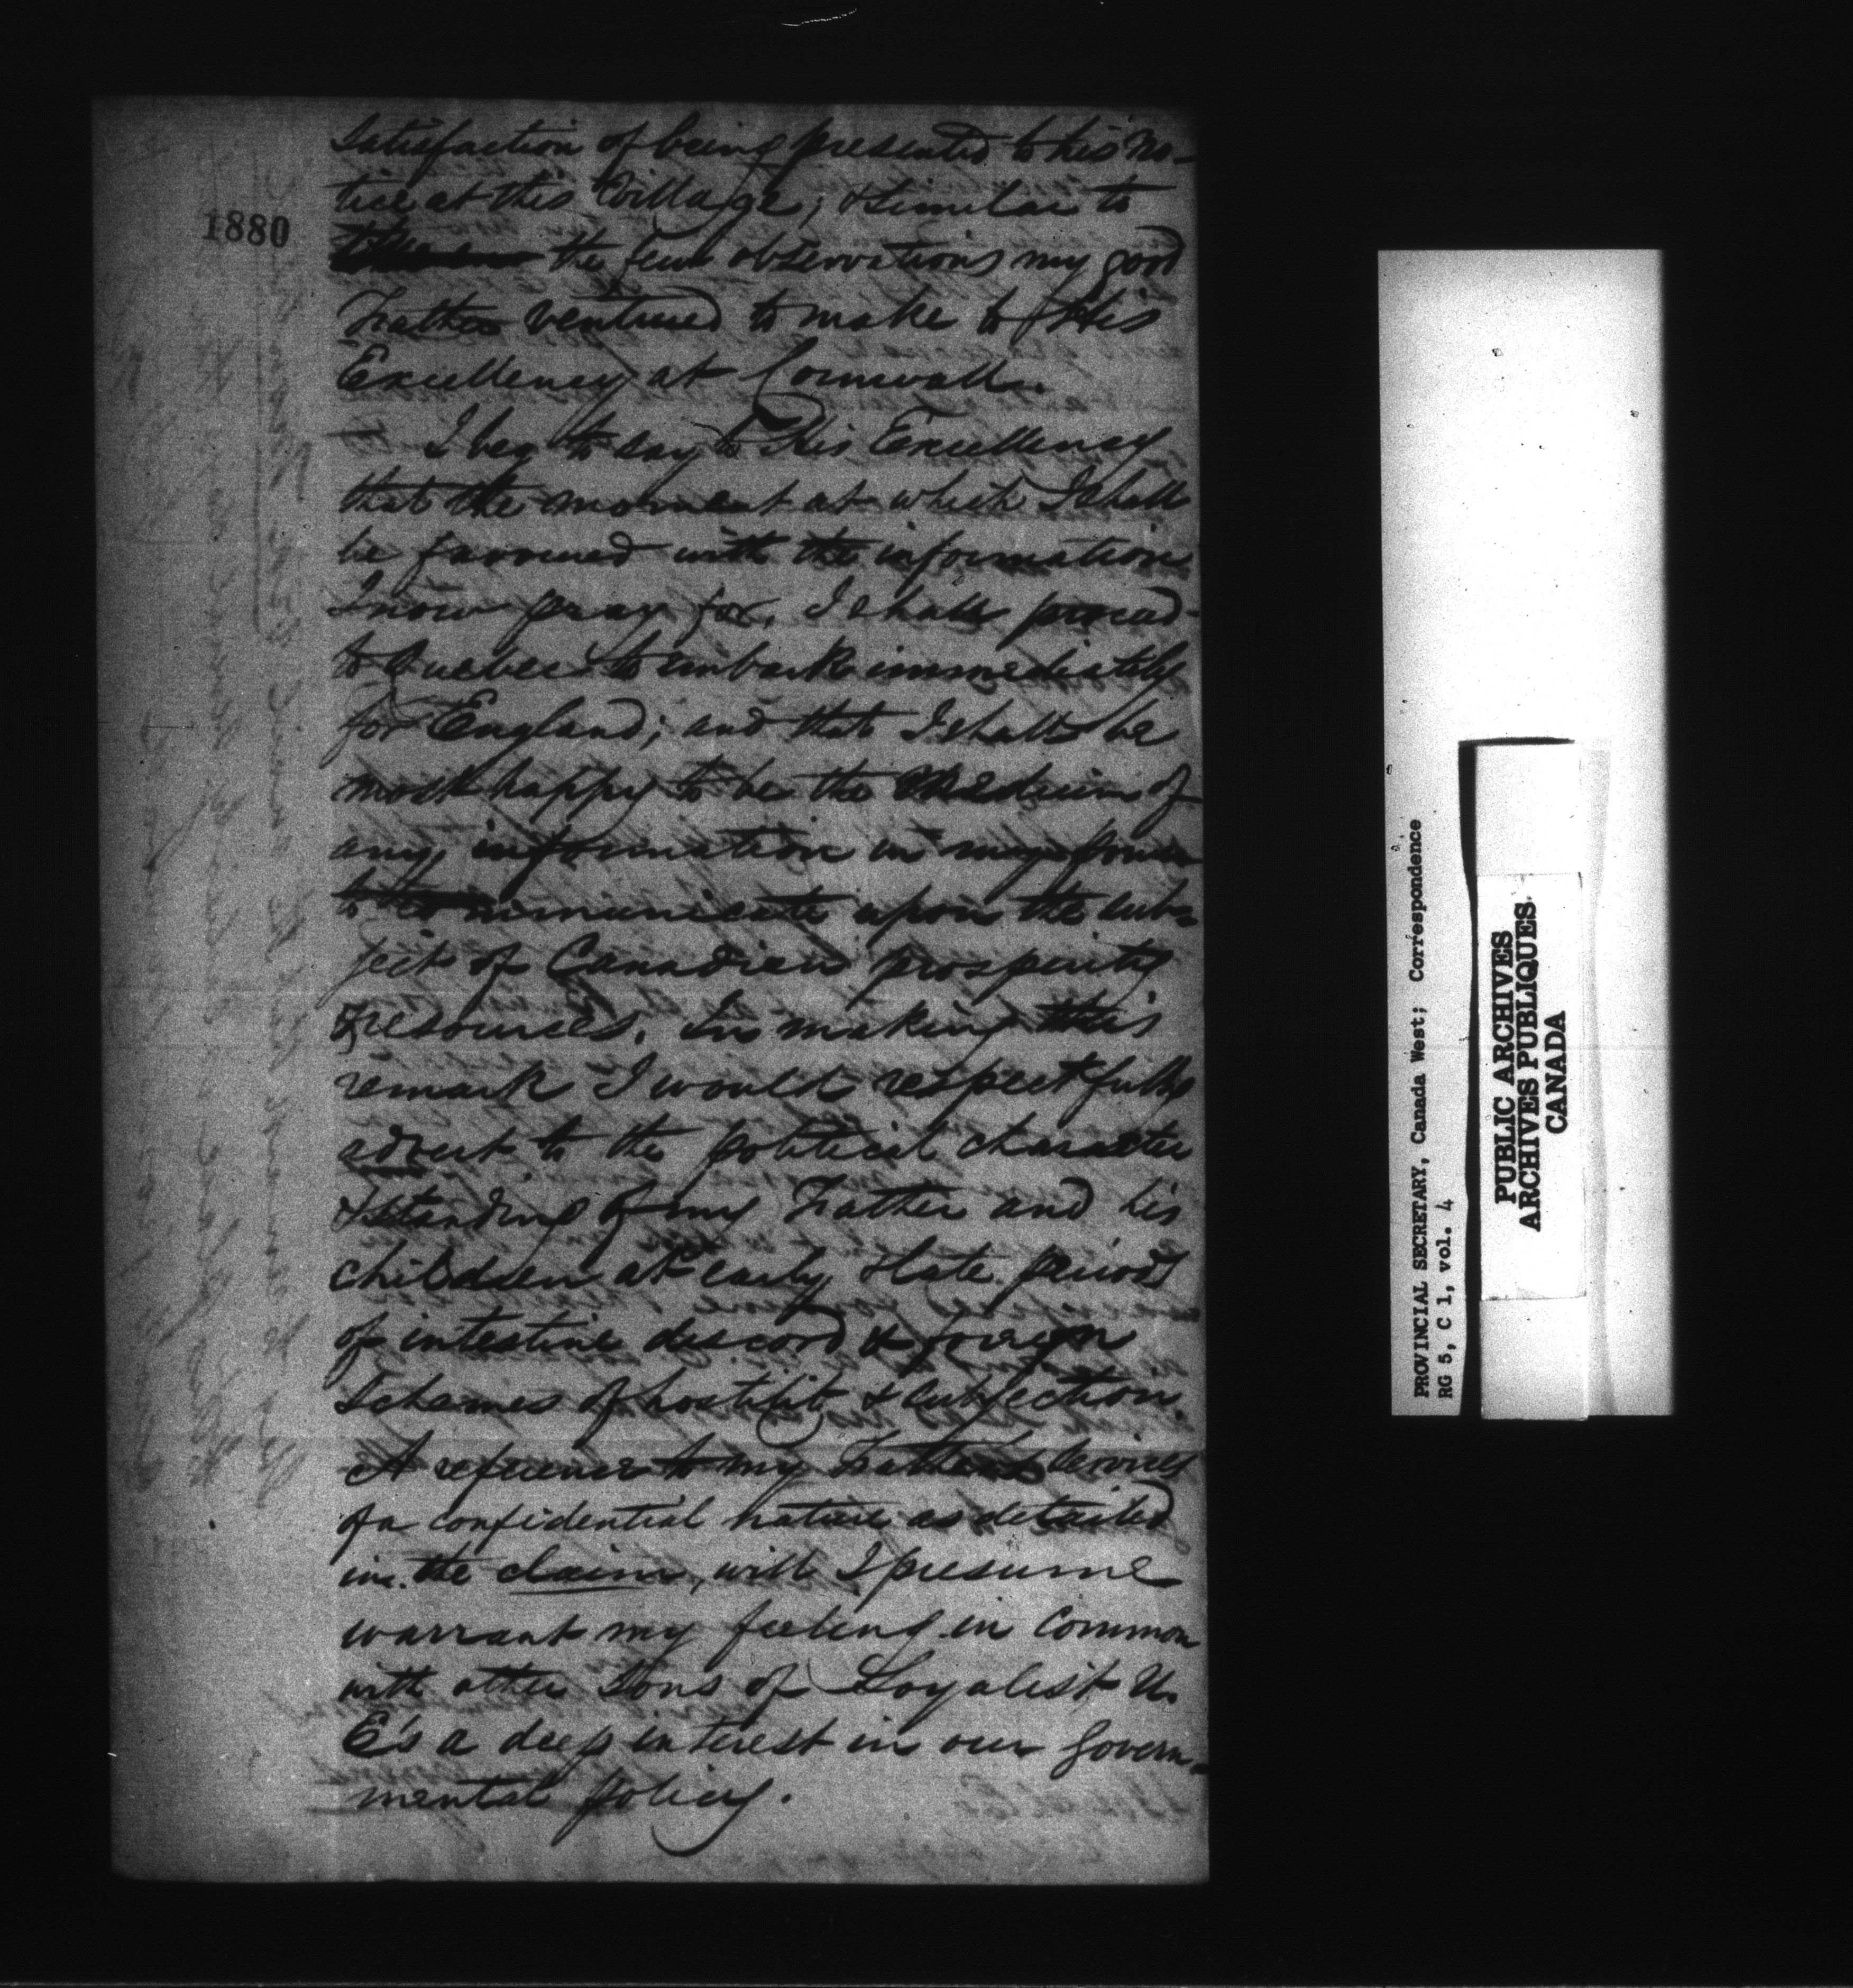 1880
Satisfaction of being presented to his no-
tice at this Village; & similar to
the few observations my good
Father ventured to make to His
Excellency at Cornwall.
I beg to say to His Excellency
that the moment at which I shall
be favoured with the information
I now pray for, I shall proceed
to Quebec to embark immediately
for England; and that I shall be
most happy to be the Medium of
any information in my power
to communicate upon the sub-
ject of Canadian prosperity
& resources. In making this
remark I would respectfully
advert to the political character
& standing of my Father and his
children at early & late periods
of intestine discord & foreign
Schemes of hostility & subjection.
A reference to my Father's Services
of a confidential nature as detailed
in the claim, will I presume
warrant my feeling in common
with other Sons of Loyalist U.
E's a deep interest in our Govern-
mental policy.
PROVINCIAL SECRETARY, Canada West; Correspondence
RG 5, C 1, vol. 4
PUBLIC ARCHIVES
ARCHIVES PUBLIQUES
CANADA